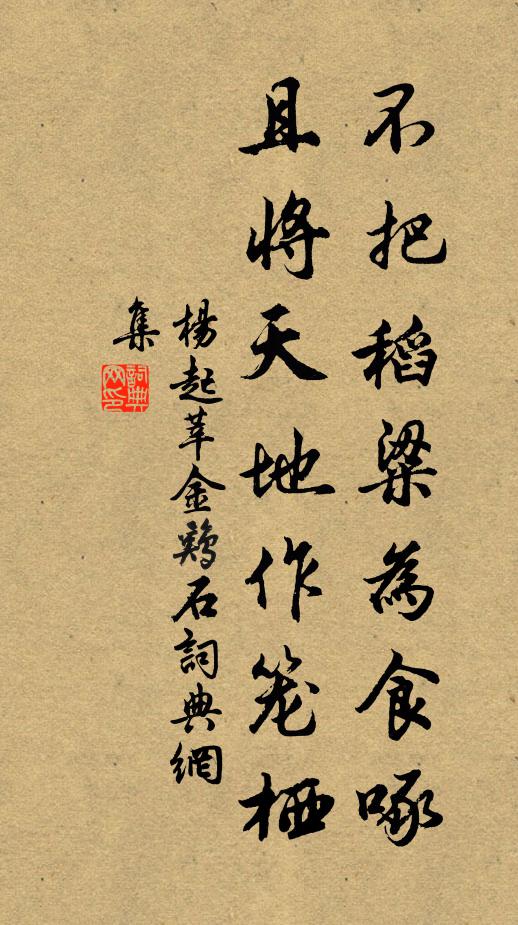 不把稻粱為食啄
且將天地作笼栖
楊起莘金鷄石詞典網
集
詞典网印